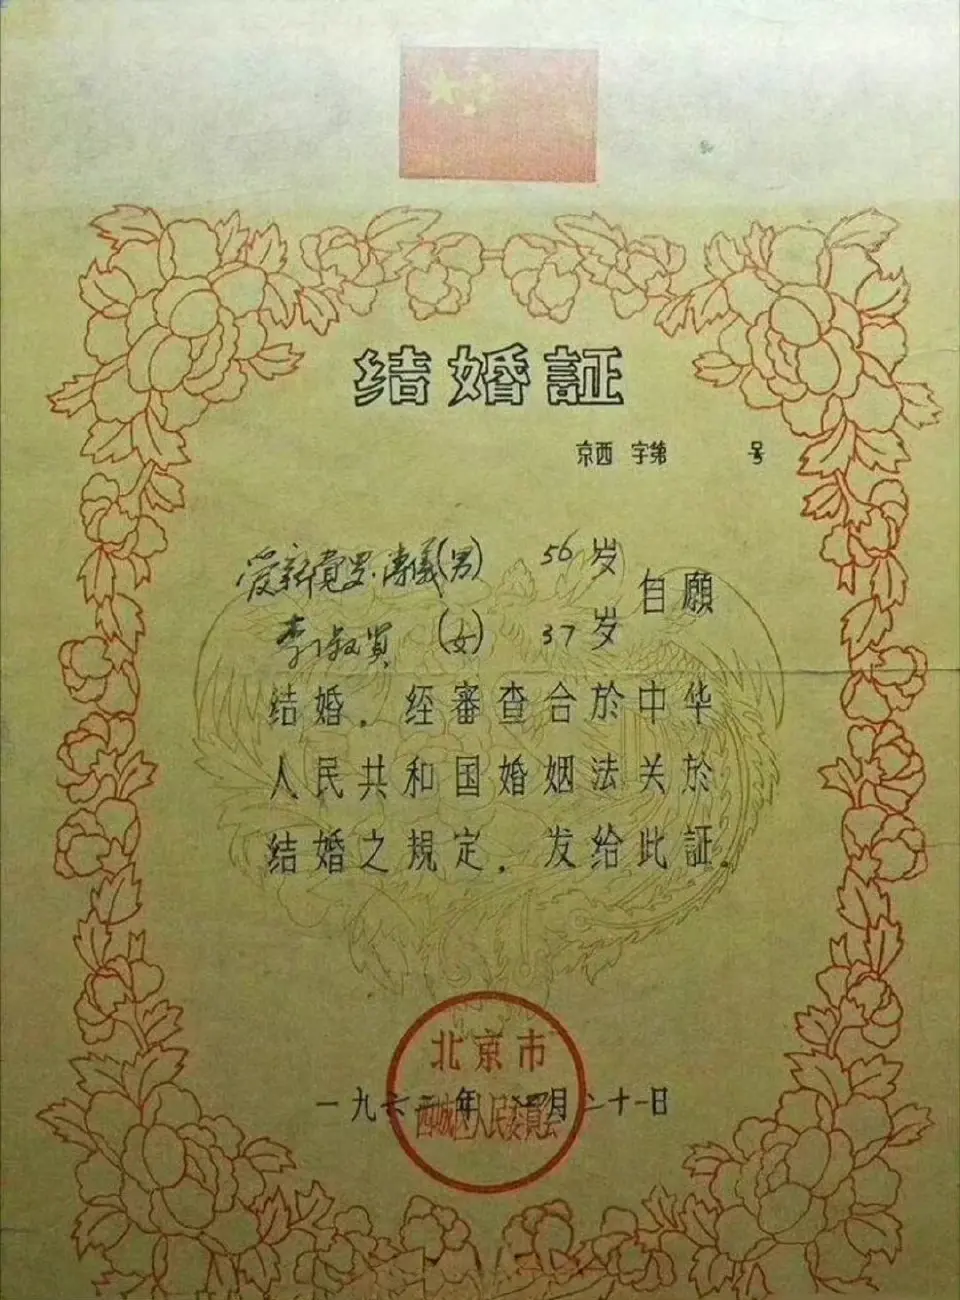 结婚証
京西 字第 号
爱新觉罗·溥儀(男) 56岁
自願
李淑贤 (女) 37岁
结婚．经審查合於中华
人民共和国婚姻法关於
结婚之規定．发给此証．
北京市
一九六二年 月二十一日
西城区人民委員会